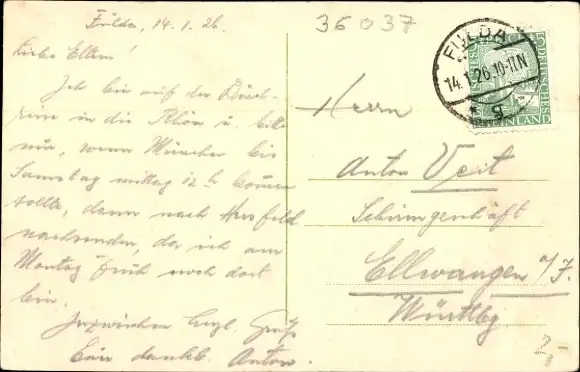 Fulda, 14.1.26.
Liebe Eltern!
Ich bin auf der Durch-
reise in die Rhön u. bitte
mir, wenn Münchner bis
Samstag mittag 12 h kommen
sollte, dann nach Hersfeld
nachsenden, da ich am
Montag früh noch dort
bin.
Inzwischen herzl. Grüße
Euer dankb. Anton.
36037
Herrn
Anton Veit
Schirmgeschäft
Ellwangen a/J.
Württbg
FULDA
14.1.26.10-11N
* g *
DEUTSCHES
RHEINLAND
5